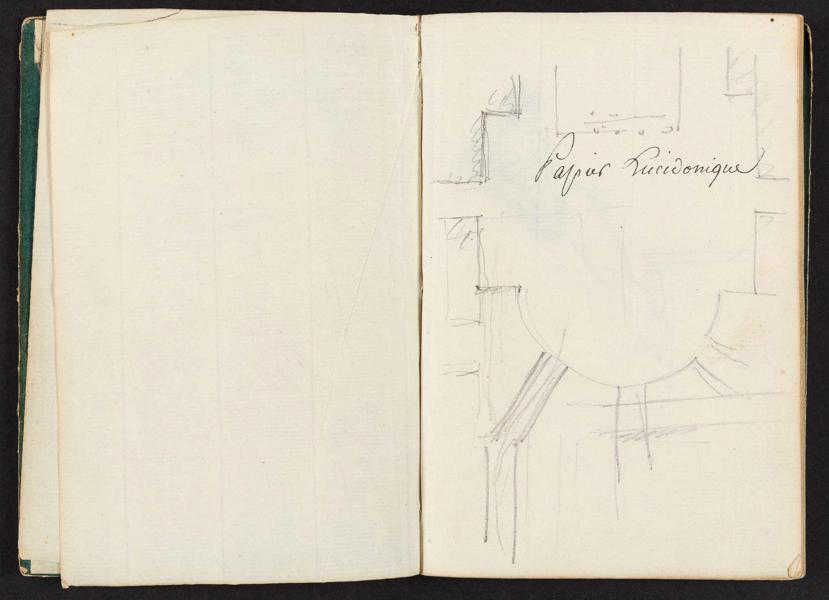 Papier Lucidonique